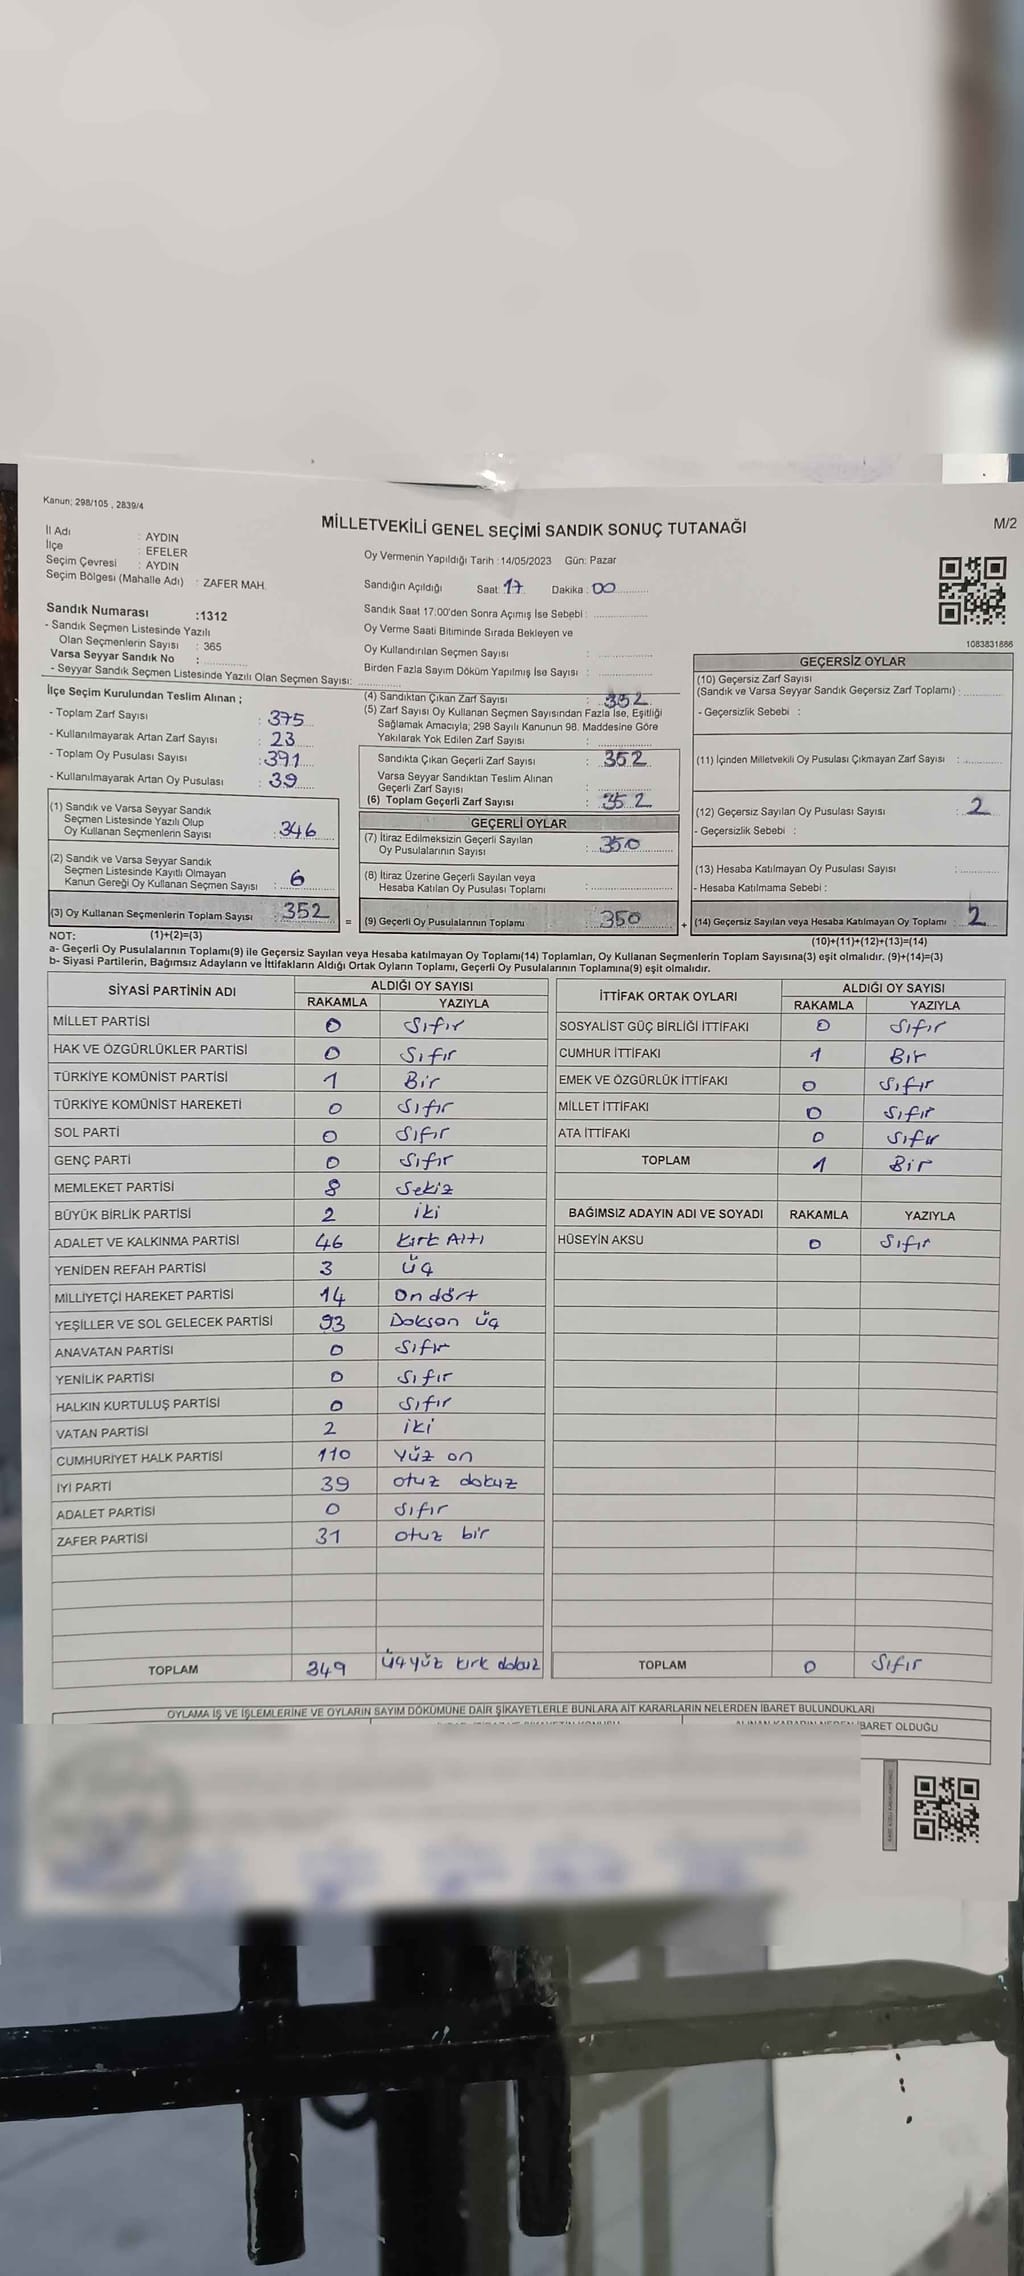 Kanun; 298/105 , 2839/4
MİLLETVEKİLİ GENEL SEÇİMİ SANDIK SONUÇ TUTANAĞI
M/2
İl Adı : AYDIN
İlçe : EFELER
Seçim Çevresi : AYDIN
Seçim Bölgesi (Mahalle Adı) : ZAFER MAH.
Oy Vermenin Yapıldığı Tarih : 14/05/2023 Gün: Pazar
Sandığın Açıldığı Saat: 17 Dakika : 00
Sandık Saat 17:00'den Sonra Açımış İse Sebebi :
Oy Verme Saati Bitiminde Sırada Bekleyen ve
Oy Kullandırılan Seçmen Sayısı :
Birden Fazla Sayım Döküm Yapılmış İse Sayısı :
1083831886
Sandık Numarası :1312
- Sandık Seçmen Listesinde Yazılı
Olan Seçmenlerin Sayısı : 365
Varsa Seyyar Sandık No :
- Seyyar Sandık Seçmen Listesinde Yazılı Olan Seçmen Sayısı:
İlçe Seçim Kurulundan Teslim Alınan ;
- Toplam Zarf Sayısı : 375
- Kullanılmayarak Artan Zarf Sayısı : 23
- Toplam Oy Pusulası Sayısı : 391
- Kullanılmayarak Artan Oy Pusulası : 39
(1) Sandık ve Varsa Seyyar Sandık
Seçmen Listesinde Yazılı Olup
Oy Kullanan Seçmenlerin Sayısı : 346
(2) Sandık ve Varsa Seyyar Sandık
Seçmen Listesinde Kayıtlı Olmayan
Kanun Gereği Oy Kullanan Seçmen Sayısı : 6
(3) Oy Kullanan Seçmenlerin Toplam Sayısı : 352 =
(4) Sandıktan Çıkan Zarf Sayısı : 352
(5) Zarf Sayısı Oy Kullanan Seçmen Sayısından Fazla İse, Eşitliği
Sağlamak Amacıyla; 298 Sayılı Kanunun 98. Maddesine Göre
Yakılarak Yok Edilen Zarf Sayısı :
Sandıkta Çıkan Geçerli Zarf Sayısı : 352
Varsa Seyyar Sandıktan Teslim Alınan
Geçerli Zarf Sayısı :
(6) Toplam Geçerli Zarf Sayısı : 352
GEÇERLİ OYLAR
(7) İtiraz Edilmeksizin Geçerli Sayılan
Oy Pusulalarının Sayısı : 350
(8) İtiraz Üzerine Geçerli Sayılan veya
Hesaba Katılan Oy Pusulası Toplamı :
(9) Geçerli Oy Pusulalarının Toplamı : 350 +
GEÇERSİZ OYLAR
(10) Geçersiz Zarf Sayısı
(Sandık ve Varsa Seyyar Sandık Geçersiz Zarf Toplamı) :
- Geçersizlik Sebebi :
(11) İçinden Milletvekili Oy Pusulası Çıkmayan Zarf Sayısı :
(12) Geçersiz Sayılan Oy Pusulası Sayısı : 2
- Geçersizlik Sebebi :
(13) Hesaba Katılmayan Oy Pusulası Sayısı :
- Hesaba Katılmama Sebebi :
(14) Geçersiz Sayılan veya Hesaba Katılmayan Oy Toplamı : 2
NOT: (1)+(2)=(3) (10)+(11)+(12)+(13)=(14)
a- Geçerli Oy Pusulalarının Toplamı(9) ile Geçersiz Sayılan veya Hesaba katılmayan Oy Toplamı(14) Toplamları, Oy Kullanan Seçmenlerin Toplam Sayısına(3) eşit olmalıdır. (9)+(14)=(3)
b- Siyasi Partilerin, Bağımsız Adayların ve İttifakların Aldığı Ortak Oyların Toplamı, Geçerli Oy Pusulalarının Toplamına(9) eşit olmalıdır.
SİYASİ PARTİNİN ADI ALDIĞI OY SAYISI
RAKAMLA YAZIYLA
MİLLET PARTİSİ 0 Sıfır
HAK VE ÖZGÜRLÜKLER PARTİSİ 0 Sıfır
TÜRKİYE KOMÜNİST PARTİSİ 1 Bir
TÜRKİYE KOMÜNİST HAREKETİ 0 Sıfır
SOL PARTİ 0 Sıfır
GENÇ PARTİ 0 Sıfır
MEMLEKET PARTİSİ 8 Sekiz
BÜYÜK BİRLİK PARTİSİ 2 iki
ADALET VE KALKINMA PARTİSİ 46 Kırk Altı
YENİDEN REFAH PARTİSİ 3 Üç
MİLLİYETÇİ HAREKET PARTİSİ 14 On dört
YEŞİLLER VE SOL GELECEK PARTİSİ 93 Doksan üç
ANAVATAN PARTİSİ 0 Sıfır
YENİLİK PARTİSİ 0 Sıfır
HALKIN KURTULUŞ PARTİSİ 0 Sıfır
VATAN PARTİSİ 2 iki
CUMHURİYET HALK PARTİSİ 110 Yüz on
İYİ PARTİ 39 otuz dokuz
ADALET PARTİSİ 0 Sıfır
ZAFER PARTİSİ 31 otuz bir
TOPLAM 349 üçyüz kırk dokuz
İTTİFAK ORTAK OYLARI ALDIĞI OY SAYISI
RAKAMLA YAZIYLA
SOSYALİST GÜÇ BİRLİĞİ İTTİFAKI 0 Sıfır
CUMHUR İTTİFAKI 1 Bir
EMEK VE ÖZGÜRLÜK İTTİFAKI 0 Sıfır
MİLLET İTTİFAKI 0 Sıfır
ATA İTTİFAKI 0 Sıfır
TOPLAM 1 Bir
BAĞIMSIZ ADAYIN ADI VE SOYADI RAKAMLA YAZIYLA
HÜSEYİN AKSU 0 Sıfır
TOPLAM 0 Sıfır
OYLAMA İŞ VE İŞLEMLERİNE VE OYLARIN SAYIM DÖKÜMÜNE DAİR ŞİKAYETLERLE BUNLARA AİT KARARLARIN NELERDEN İBARET BULUNDUKLARI
İBARET OLDUĞU